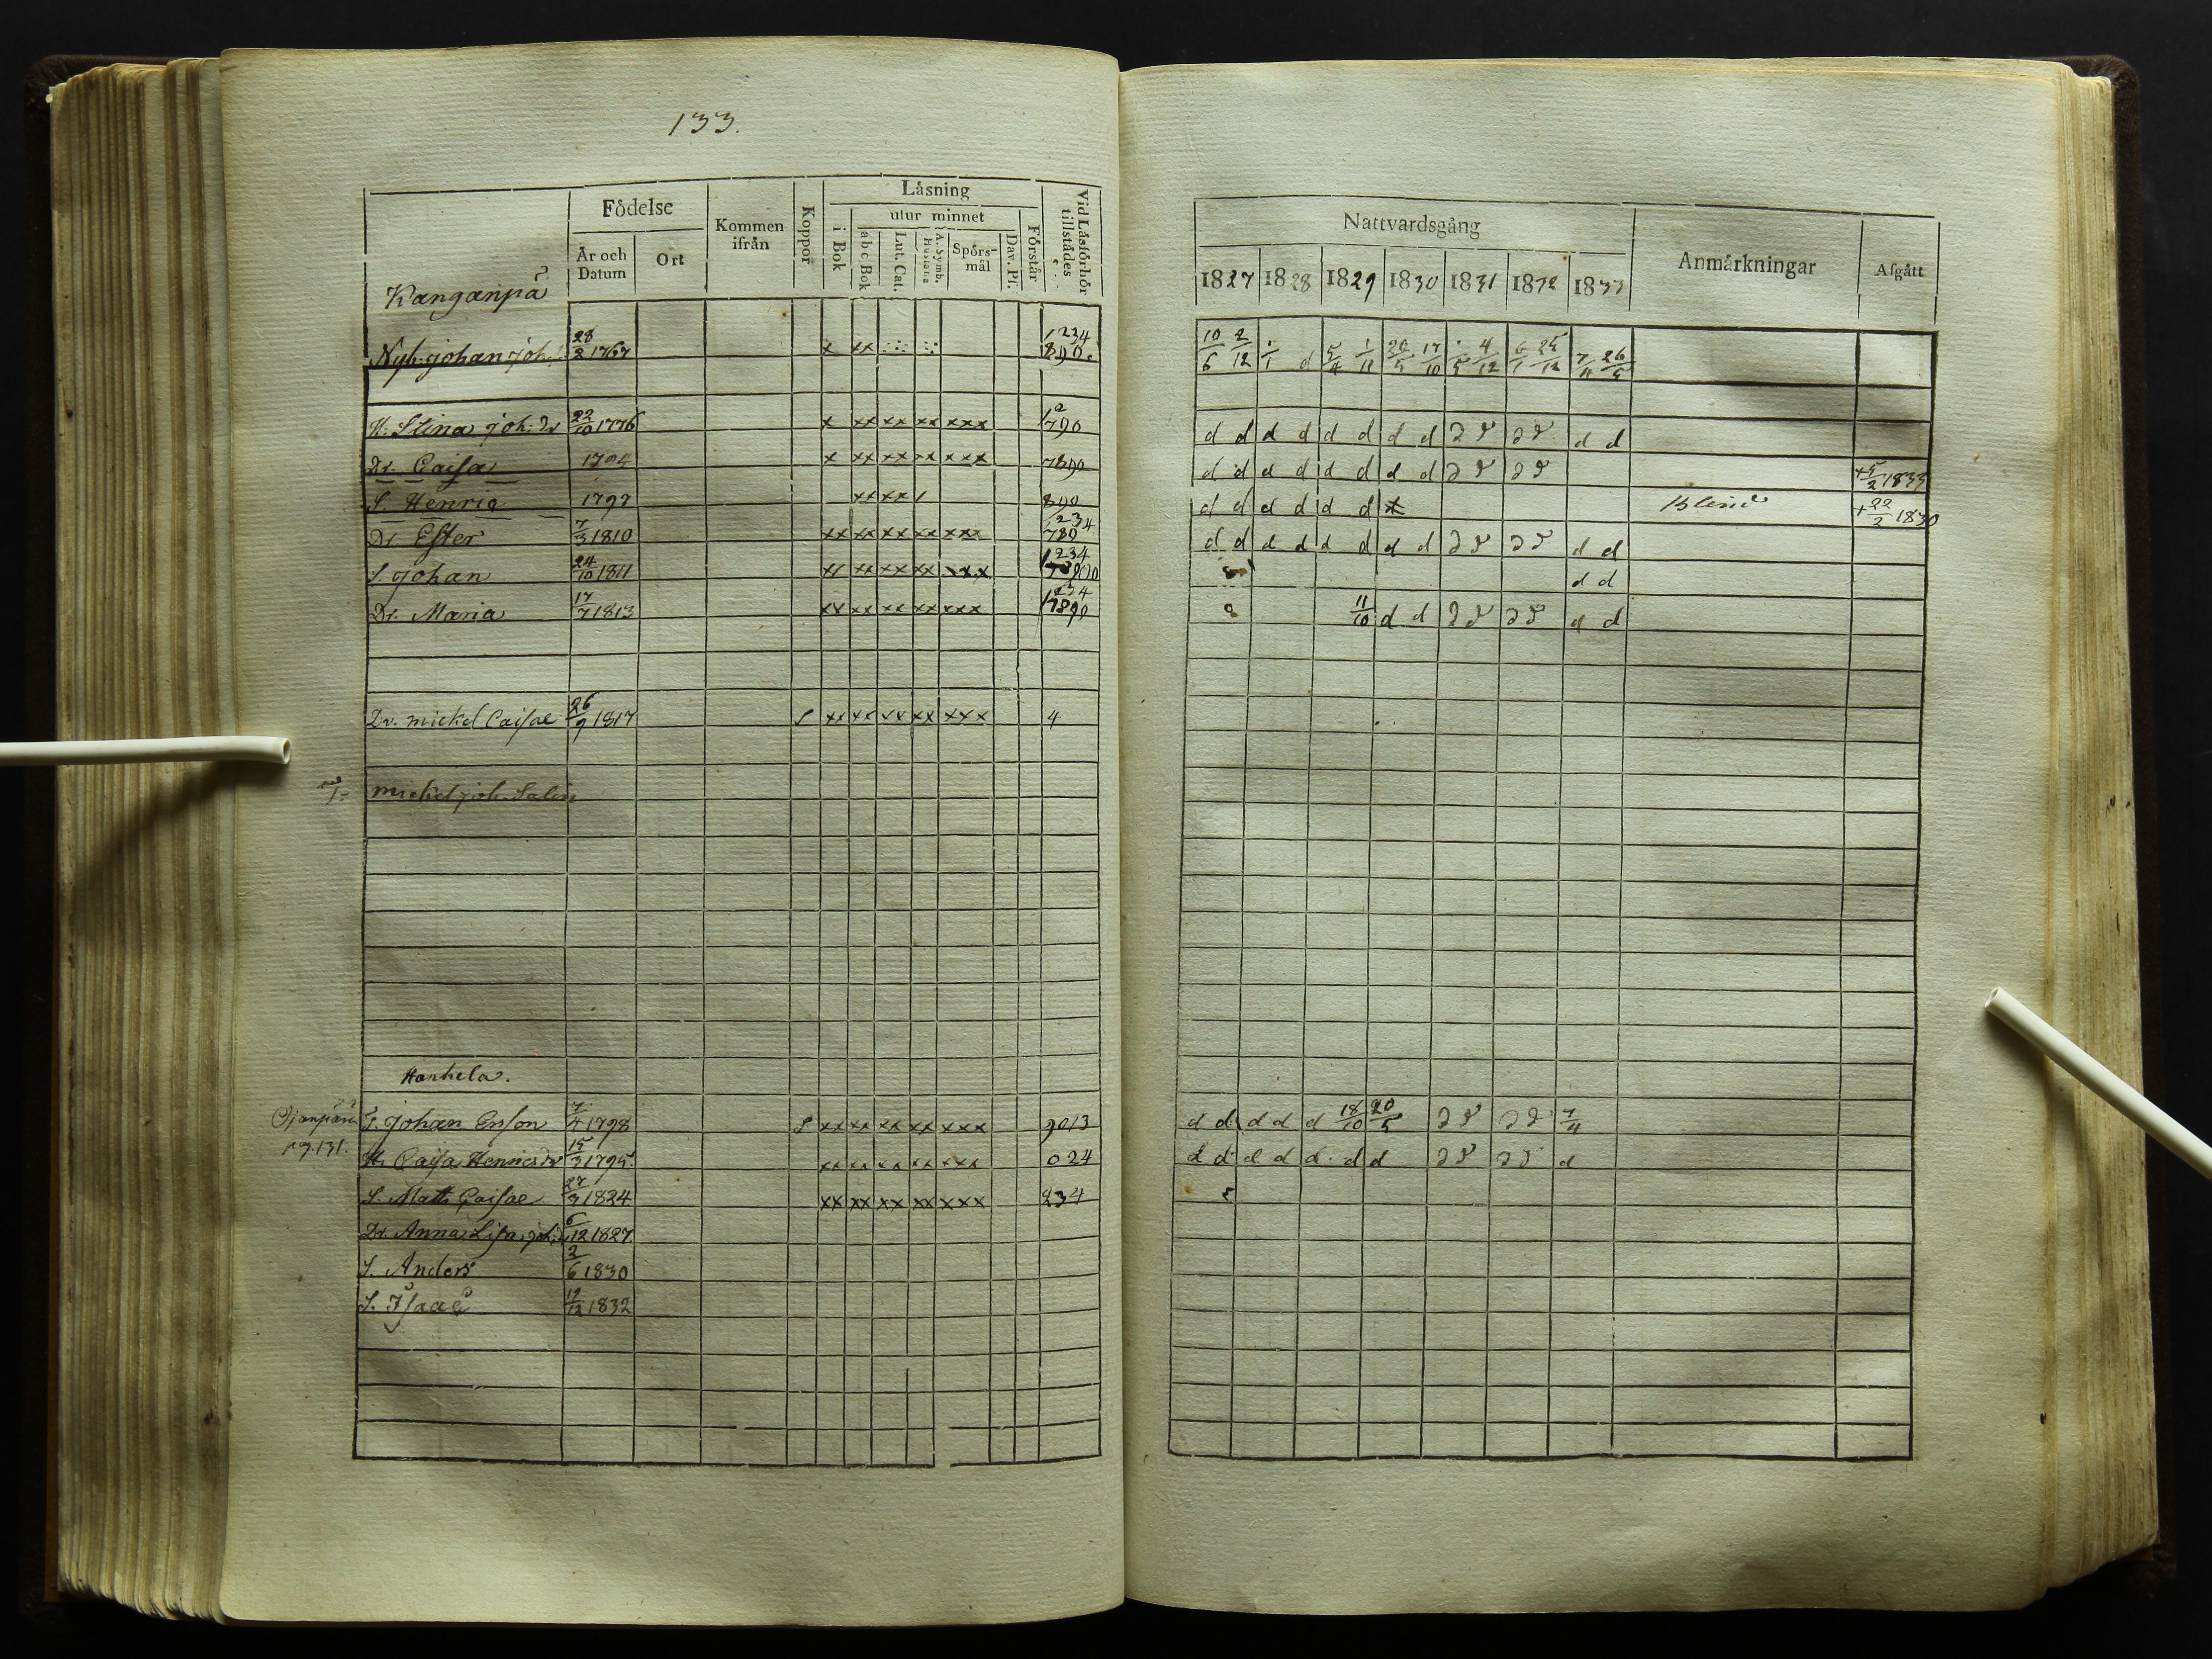 133.
Födelse
Kommen ifrån
Koppor
Läsning
utur minnet
i Bok
a b c Bok
Lut. Cat.
A. Symb. Hustafla
Spörsmål
Dav. Ps.
Förstår
Vid Läsförhör tillstädes
År och Datum
Ort
Kanganpä
Nyb. Johan Joh. 28/2 1767 x xx 1234 890.
H. Stina Joh: Dr 22/10 1776 x xx xx xx xxx 12 790
Dr. Caisa 1794 x xx xx xx xxx 7890
S. Henric 1797 xx xx / 890
Dr. Ester 7/3 1810 xx xx xx xx xxx 1234 789
S. Johan 24/10 1811 xx xx xx xx xxx 1234
Dr. Maria 17/7 1813 xx xx xx xx xxx 1234 7890
Dr. mickel Caisae 26/9 1817 S xx xx xx xx xxx 4
mickel joh. Salin
Hanhela.
pg. 131.
S. Johan Ersson 7/4 1798 S xx xx xx xx xxx 9013
H. Caisa Henrics Dr 15/3 1795. xx xx xx xx xxx 024
S. Matts Caisae 27/3 1824 xx xx xx xx xxx 234
Dr. Anna Lisa, joh: D. 6/12 1827
S. Anders 2/6 1830
S. Isaac 12/12 1832
Nattvardsgång
Anmärkningar
Afgått
1827 1828 1829 1830 1831 1832 1833
10/6 2/12 1/1 d 5/4 1/11 20/5 17/10 4/12 6/1 25/12 7/4 26/5
d d d d d d d d d d d d d d
d d d d d d d d d d d d + 5/2 1833
d d d d d d + 22/2 1830
d d d d d d d d d d d d d d
d d
11/10 d d d d d d d d
d d d d d 18/10 20/5 d d d d 7/4
d d d d d d d d d d d d